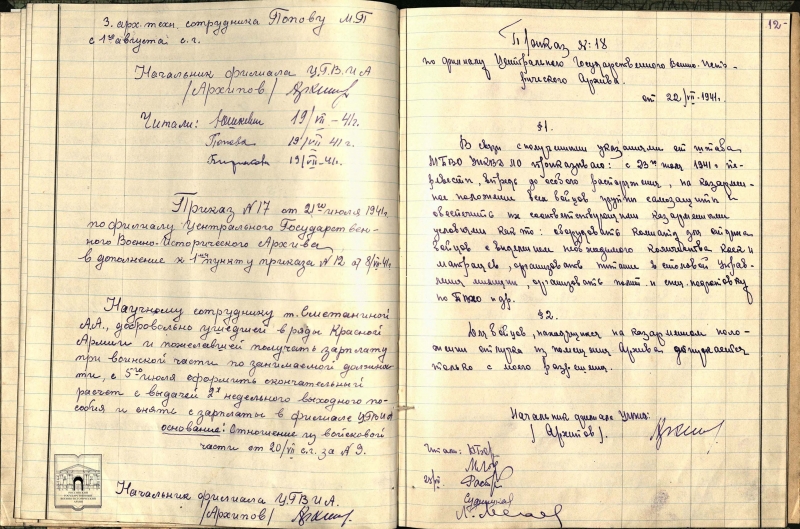 3. арх. техн. сотрудника Попову М.П
с 1го августа с.г.
Начальник филиала ЦГВИА
/Архипов/
Читали: Юшкевич 19/VII-41г.
Попова 19/VII 41г.
19/VII-41г.
Приказ N17 от 21го июля 1941г.
по филиалу Центрального Государствен-
ного Военно-Исторического Архива
в дополнение к 1му пункту приказа N12 от 8/VII-41г
Научному сотруднику т. Сметаниной
А.А., добровольно ушедшей в ряды Красной
Армии и пожелавшей получать зарплату
при воинской части по занимаемой должнос-
ти, с 5го июля оформить окончательный
расчет с выдачей 2х недельного выходного по-
собия и снять с зарплаты в филиале ЦГВИА
основание: Отношение из войсковой
части от 20/VII с.г. за N9.
Начальник филиала ЦГВИА.
/Архипов/
12-
Приказ N:18
по филиалу Центрального Государственного Военно-Исто-
рического Архива.
от 22/VII-1941г.
§1.
В связи с полученными указаниями от штаба
МПВО УНКВД ЛО приказываю: с 23го июля 1941г. пе-
ревести, впредь до особого распоряжения, на казармен-
ное положение всех бойцов группы самозащиты и
обеспечить их соответствующими казарменными
условиями как то: оборудовать комнату для отдыха
бойцов с выделением необходимого количества коек и
матрацев, организовать питание в столовой Управ-
ления милиции, организовать полит. и спец. подготовку
по ПВХО и др.
§2.
Для бойцов, находящихся на казарменном поло-
жении отлучка из помещения Архива допускается
только с моего разрешения.
Начальник филиала ЦГВИА:
(Архипов).
Читали: